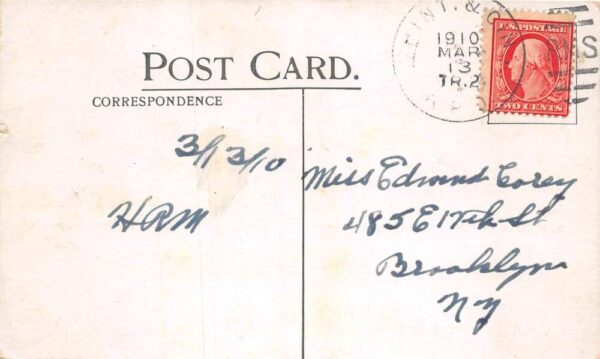 1910
MAR
13
TR.2
U.S. POSTAGE
TWO CENTS
POST CARD.
CORRESPONDENCE
3/13/10
HRM
Miss Edmund Corey
485 E 17th St
Brooklyn
NY